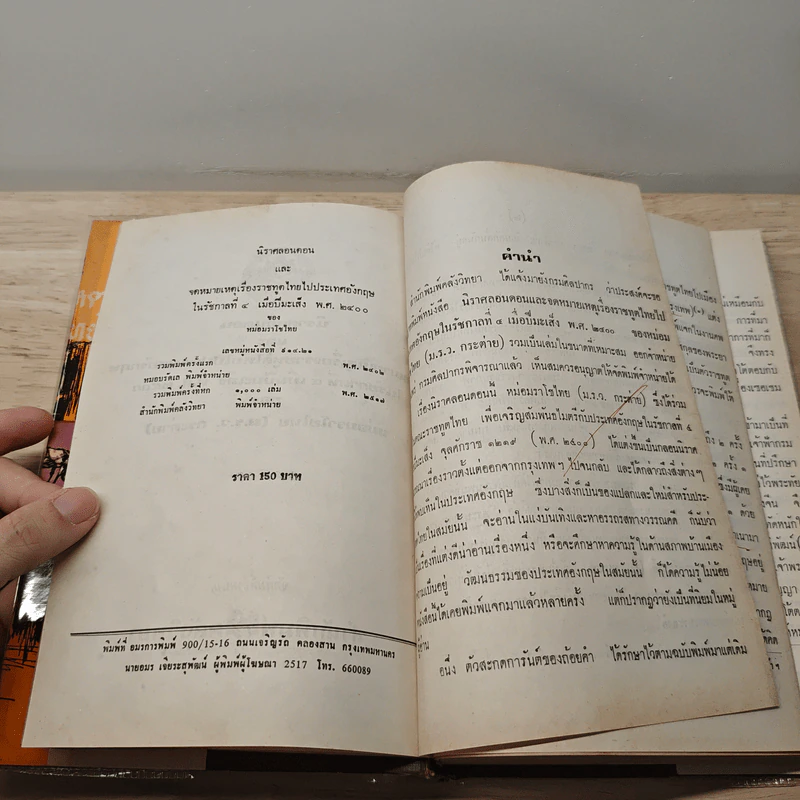 นิราศลอนดอน
และ
จดหมายเหตุเรื่องราชทูตไทยไปประเทศอังกฤษ
ในรัชกาลที่ ๔ เมื่อปีมะเส็ง พ.ศ. ๒๔๐๐
ของ
หม่อมราโชไทย
เลขหมู่หนังสือที่ ๙๑๔.๒๑
รวมพิมพ์ครั้งแรก พ.ศ. ๒๔๐๒
หมอบรัดเล พิมพ์จำหน่าย
รวมพิมพ์ครั้งที่หก ๑,๐๐๐ เล่ม พ.ศ. ๒๕๑๗
สำนักพิมพ์คลังวิทยา พิมพ์จำหน่าย
ราคา 150 บาท
พิมพ์ที่ อมรการพิมพ์ 900/15-16 ถนนเจริญรัถ คลองสาน กรุงเทพมหานคร
นายอมร เจียระสุพัฒน์ ผู้พิมพ์ผู้โฆษณา 2517 โทร. 660089
คำนำ
สำนักพิมพ์คลังวิทยา ได้แจ้งมายังกรมศิลปากร ว่าประสงค์จะขอ
พิมพ์หนังสือ นิราศลอนดอนและจดหมายเหตุเรื่องราชทูตไทยไป
อังกฤษในรัชกาลที่ ๔ เมื่อปีมะเส็ง พ.ศ. ๒๔๐๐ ของหม่อม
ไทย (ม.ร.ว. กระต่าย) รวมเป็นเล่มในขนาดที่เหมาะสม ออกจำหน่าย
กรมศิลปากรพิจารณาแล้ว เห็นสมควรอนุญาตให้จัดพิมพ์จำหน่ายได้
เรื่องนิราศลอนดอนนี้ หม่อมราโชไทย (ม.ร.ว. กระต่าย) ซึ่งได้ร่วม
คณะราชทูตไทย เพื่อเจริญสัมพันธไมตรีกับประเทศอังกฤษในรัชกาลที่ ๔
มะเส็ง จุลศักราช ๑๒๑๙ (พ.ศ. ๒๔๐๐) ได้แต่งขึ้นเป็นกลอนนิราศ
นาเรื่องราวตั้งแต่ออกจากกรุงเทพฯ ไปจนกลับ และได้กล่าวถึงสิ่งต่างๆ
พบเห็นในประเทศอังกฤษ ซึ่งบางสิ่งก็เป็นของแปลกและใหม่สำหรับประ-
ไทยในสมัยนั้น จะอ่านในแง่บันเทิงและหาอรรถรสทางวรรณคดี ก็นับว่า
เรื่องที่แต่งดีน่าอ่านเรื่องหนึ่ง หรือจะศึกษาหาความรู้ในด้านสภาพบ้านเมือง
ความเป็นอยู่ วัฒนธรรมของประเทศอังกฤษในสมัยนั้น ก็ได้ความรู้ไม่น้อย
หนังสือนี้ได้เคยพิมพ์แจกมาแล้วหลายครั้ง แต่ก็ปรากฏว่ายังเป็นที่นิยมในหมู่
อนึ่ง ตัวสะกดการันต์ของถ้อยคำ ได้รักษาไว้ตามฉบับพิมพ์มาแต่เดิม